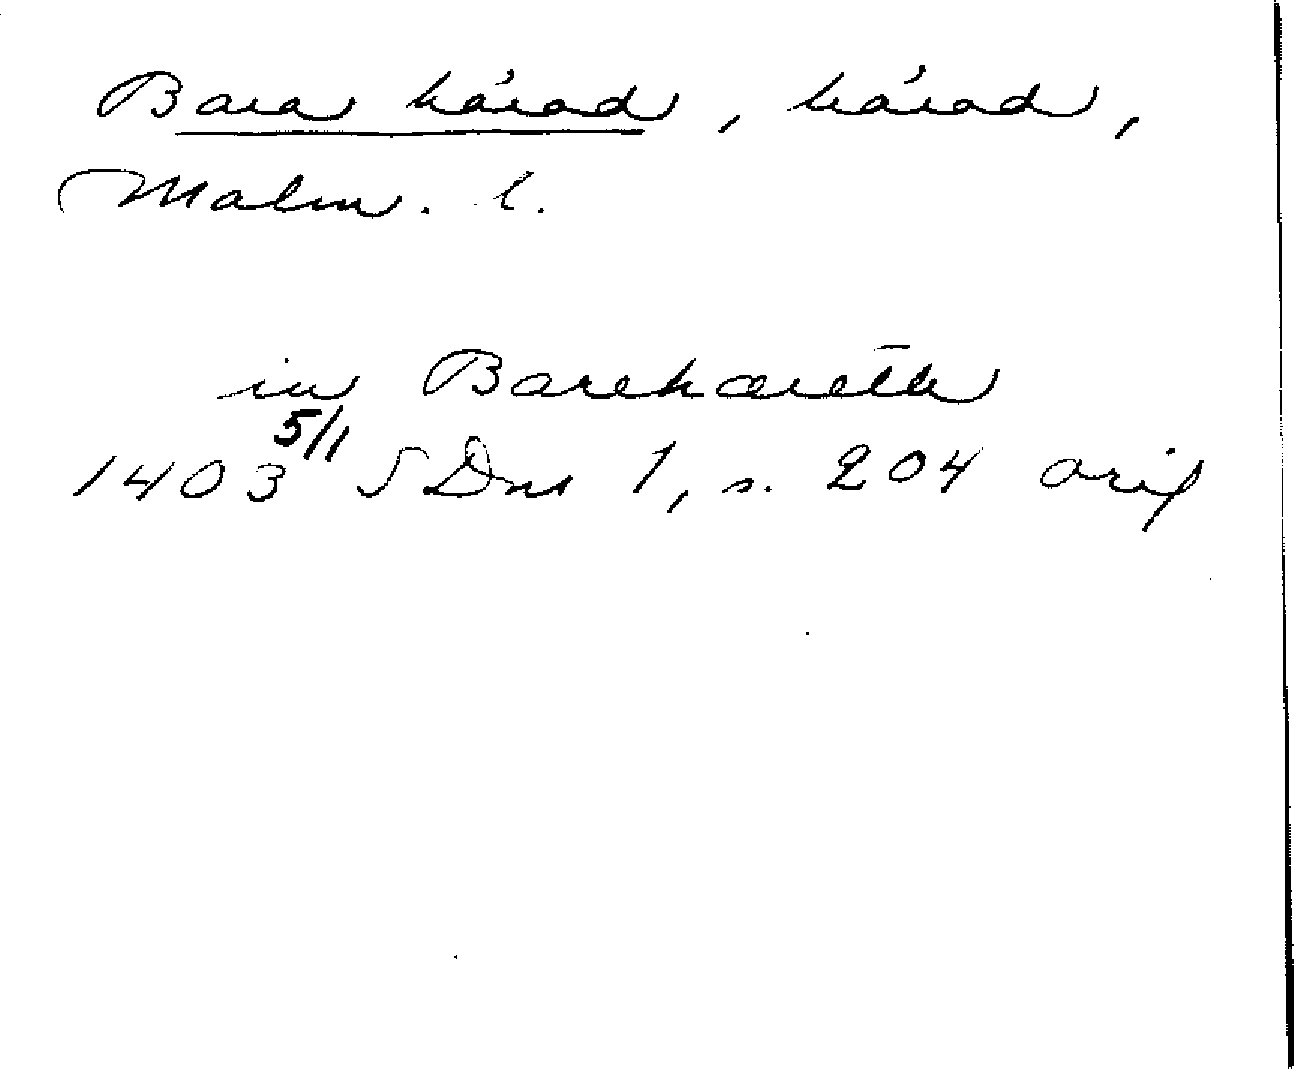 Bara härad, härad,
Malm. l.
in Barehæret̄h
5/1
1403 SDns 1, s. 204 orig